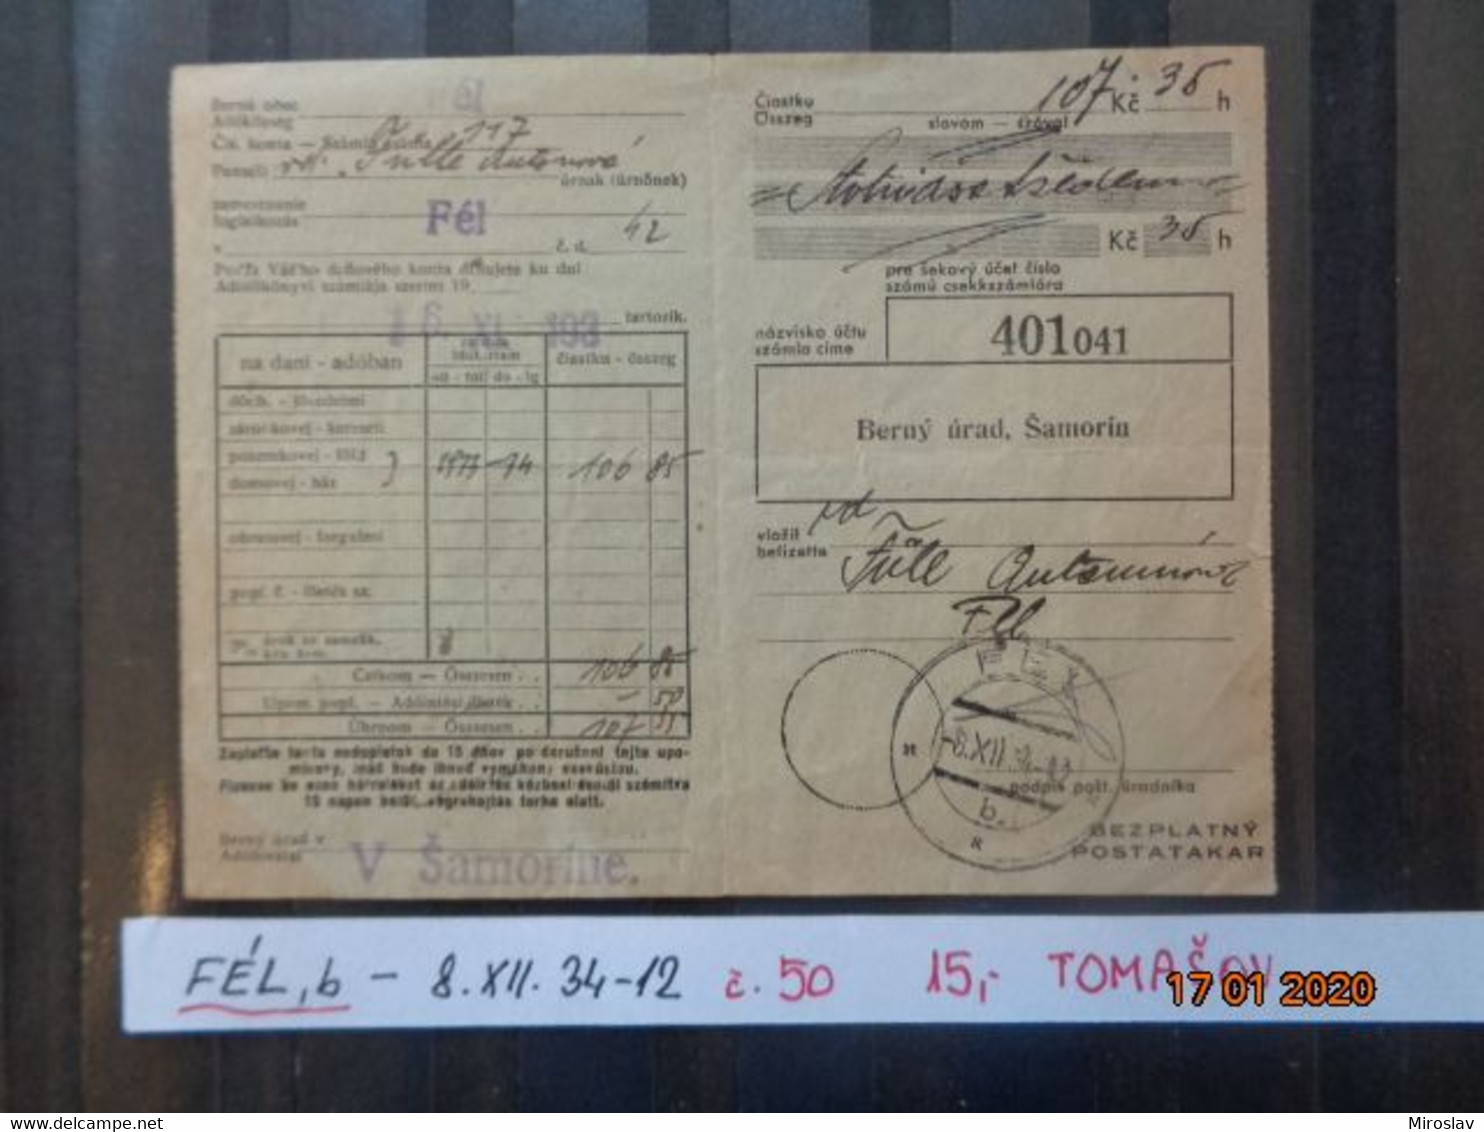 él
Berná obec
Adóközség
Čís. konta — Számla száma 117
úrnak (úrnőnek)
Fél
v č. d. 42
Podľa Váš'ho daňového konta dlhujete ku dni
Adófőkönyvi számlája szerint 19
16. XI. 193
tartozik.
na dani - adóban
od - tól do - ig
čiastku - összeg
dôch. - jövedelmi
zárobkovej - kereseti
pozemkovej - föld
domovej - ház
1933-34 106 85
obratovej - forgalmi
popl. č. - illeték sz.
Celkom — Összesen . . 106 85
Upom. popl. — Adóintési illeték . . — 50
Úhrnom — Összesen . . 107 35
Zaplaťte tento nedoplatok do 15 dňov po doručení tejto upo-
mienky, inak bude ihneď vymáhaný exekúciou.
15 napon belül, végrehajtás terhe alatt.
Berný úrad v
Adóhivatal
V Šamoríne.
Čiastku
Összeg
107 Kč 35 h
slovom — szóval
Kč 35 h
pre šekový účet číslo
számú csekkszámlára
názvisko účtu
számla címe
401041
Berný úrad, Šamorín
vd
vložil
befizette
Fülle Antonínová
Fél
F É L
-8.XII.34-12
b.
podpis pošt. úradníka
BEZPLATNÝ
POSTATAKAR
FÉL, b - 8.XII.34-12 č. 50 15,- TOMAŠOV
17 01 2020
delcampe.net
Miroslav